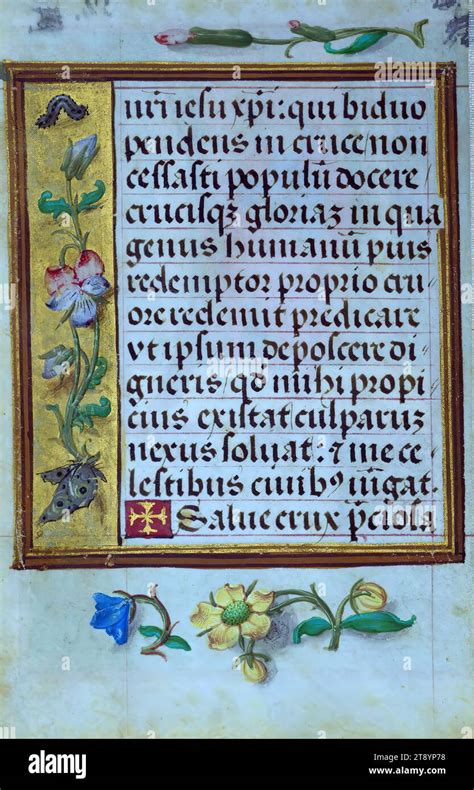 nr̃i iesu xp̃i: qui biduo
pendens in cruce non
cessasti populũ docere
crucisqꝫ gloriaꝫ in qua
genus humanũ puis
redemptor proprio cru
ore redemit predicare
vt ipsum deposcere di
gneris / qd mihi propi
cius existat culparuꝫ
nexus soluat: ⁊ me ce
lestibus ciuibꝰ iũgat.
Salue crux p̃ciosa
alamy
Image ID: 2T8YP78
www.alamy.com